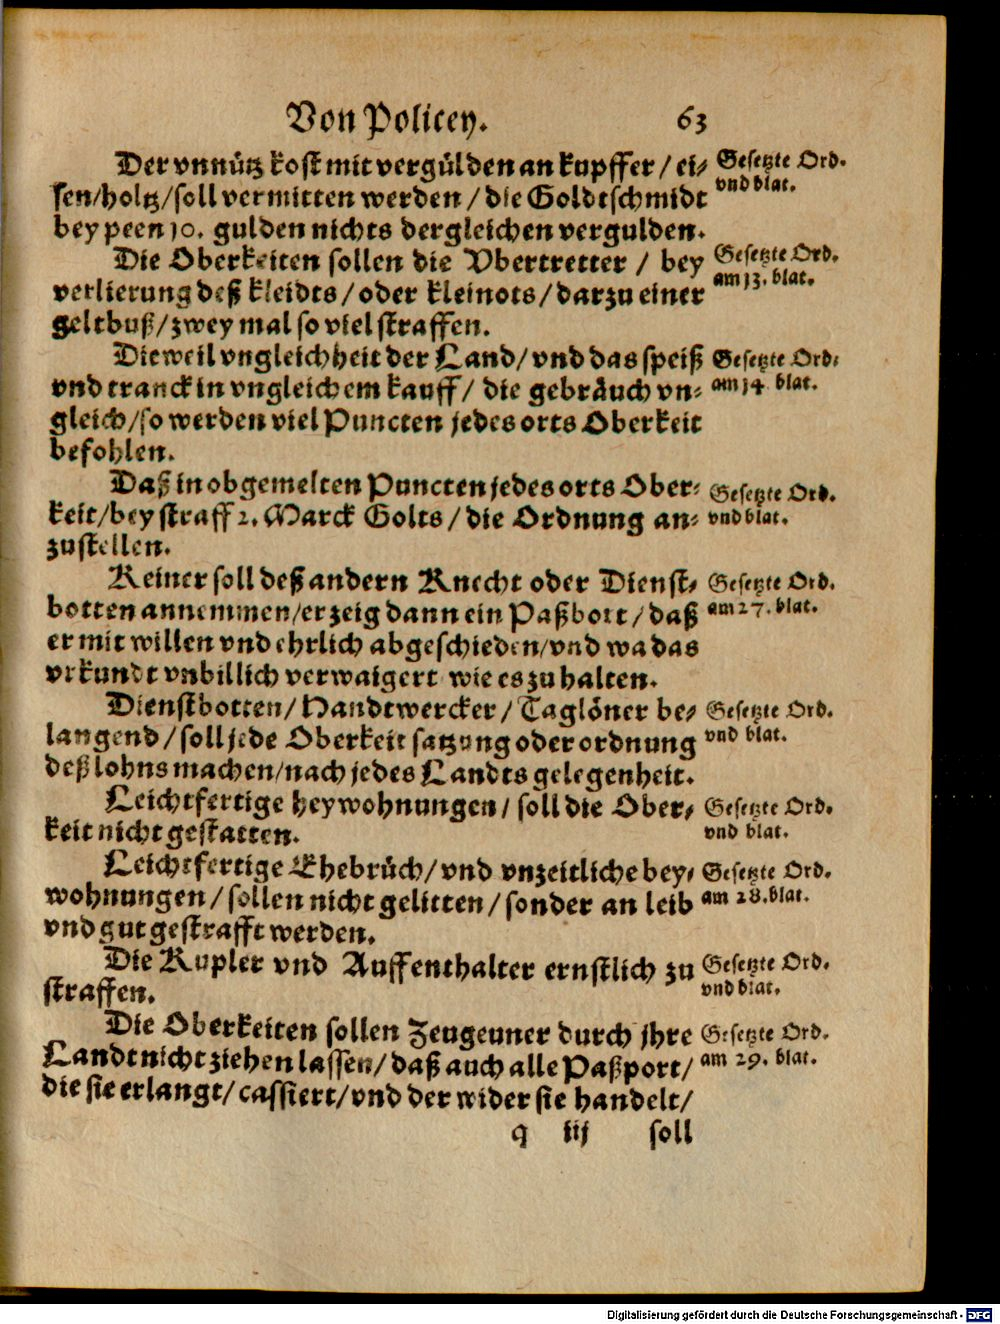 Von Policey. 63
Der vnnütz kost mit vergülden an kupffer / ei- Gesetzte Ord.
sen/holtz/soll vermitten werden / die Goldtschmidt vnd blat.
bey peen 10. gulden nichts dergleichen vergulden.
Die Oberkeiten sollen die Vbertretter / bey Gesetzte Ord.
verlierung deß kleidts/oder kleinots/darzu einer am 13. blat.
geltbuß/zwey mal so viel straffen.
Dieweil vngleichheit der Land/vnd das speiß Gesetzte Ord.
vnd tranck in vngleichem kauff/ die gebräuch vn- am 14 blat.
gleich/so werden viel Puncten jedes orts Oberkeit
befohlen.
Daß in obgemelten Puncten jedes orts Ober- Gesetzte Ord.
keit/bey straff 2. Marck Golts/die Ordnung an- vnd blat.
zustellen.
Keiner soll deß andern Knecht oder Dienst- Gesetzte Ord.
botten annemmen/er zeig dann ein Paßbort/daß am 27. blat.
er mit willen vnd ehrlich abgeschieden/vnd wa das
vrkundt vnbillich verwaigert wie es zu halten.
Dienstbotten/Handtwercker/Taglöner be- Gesetzte Ord.
langend/soll jede Oberkeit satzung oder ordnung vnd blat.
deß lohns machen/nach jedes Landts gelegenheit.
Leichtfertige heywohnungen/soll die Ober- Gesetzte Ord.
keit nicht gestatten. vnd blat.
Leichtfertige Ehebrüch/vnd vnzeitliche bey- Gesetzte Ord.
wohnungen/sollen nicht gelitten/sonder an leib am 28. blat.
vnd gut gestrafft werden.
Die Kupler vnd Auffenthalter ernstlich zu Gesetzte Ord.
straffen. vnd blat.
Die Oberkeiten sollen Zeugeuner durch jhre Gesetzte Ord.
Landt nicht ziehen lassen/daß auch alle Paßport/ am 29. blat.
die sie erlangt/cassiert/vnd der wider sie handelt/
q iij soll
Digitalisierung gefördert durch die Deutsche Forschungsgemeinschaft - DFG